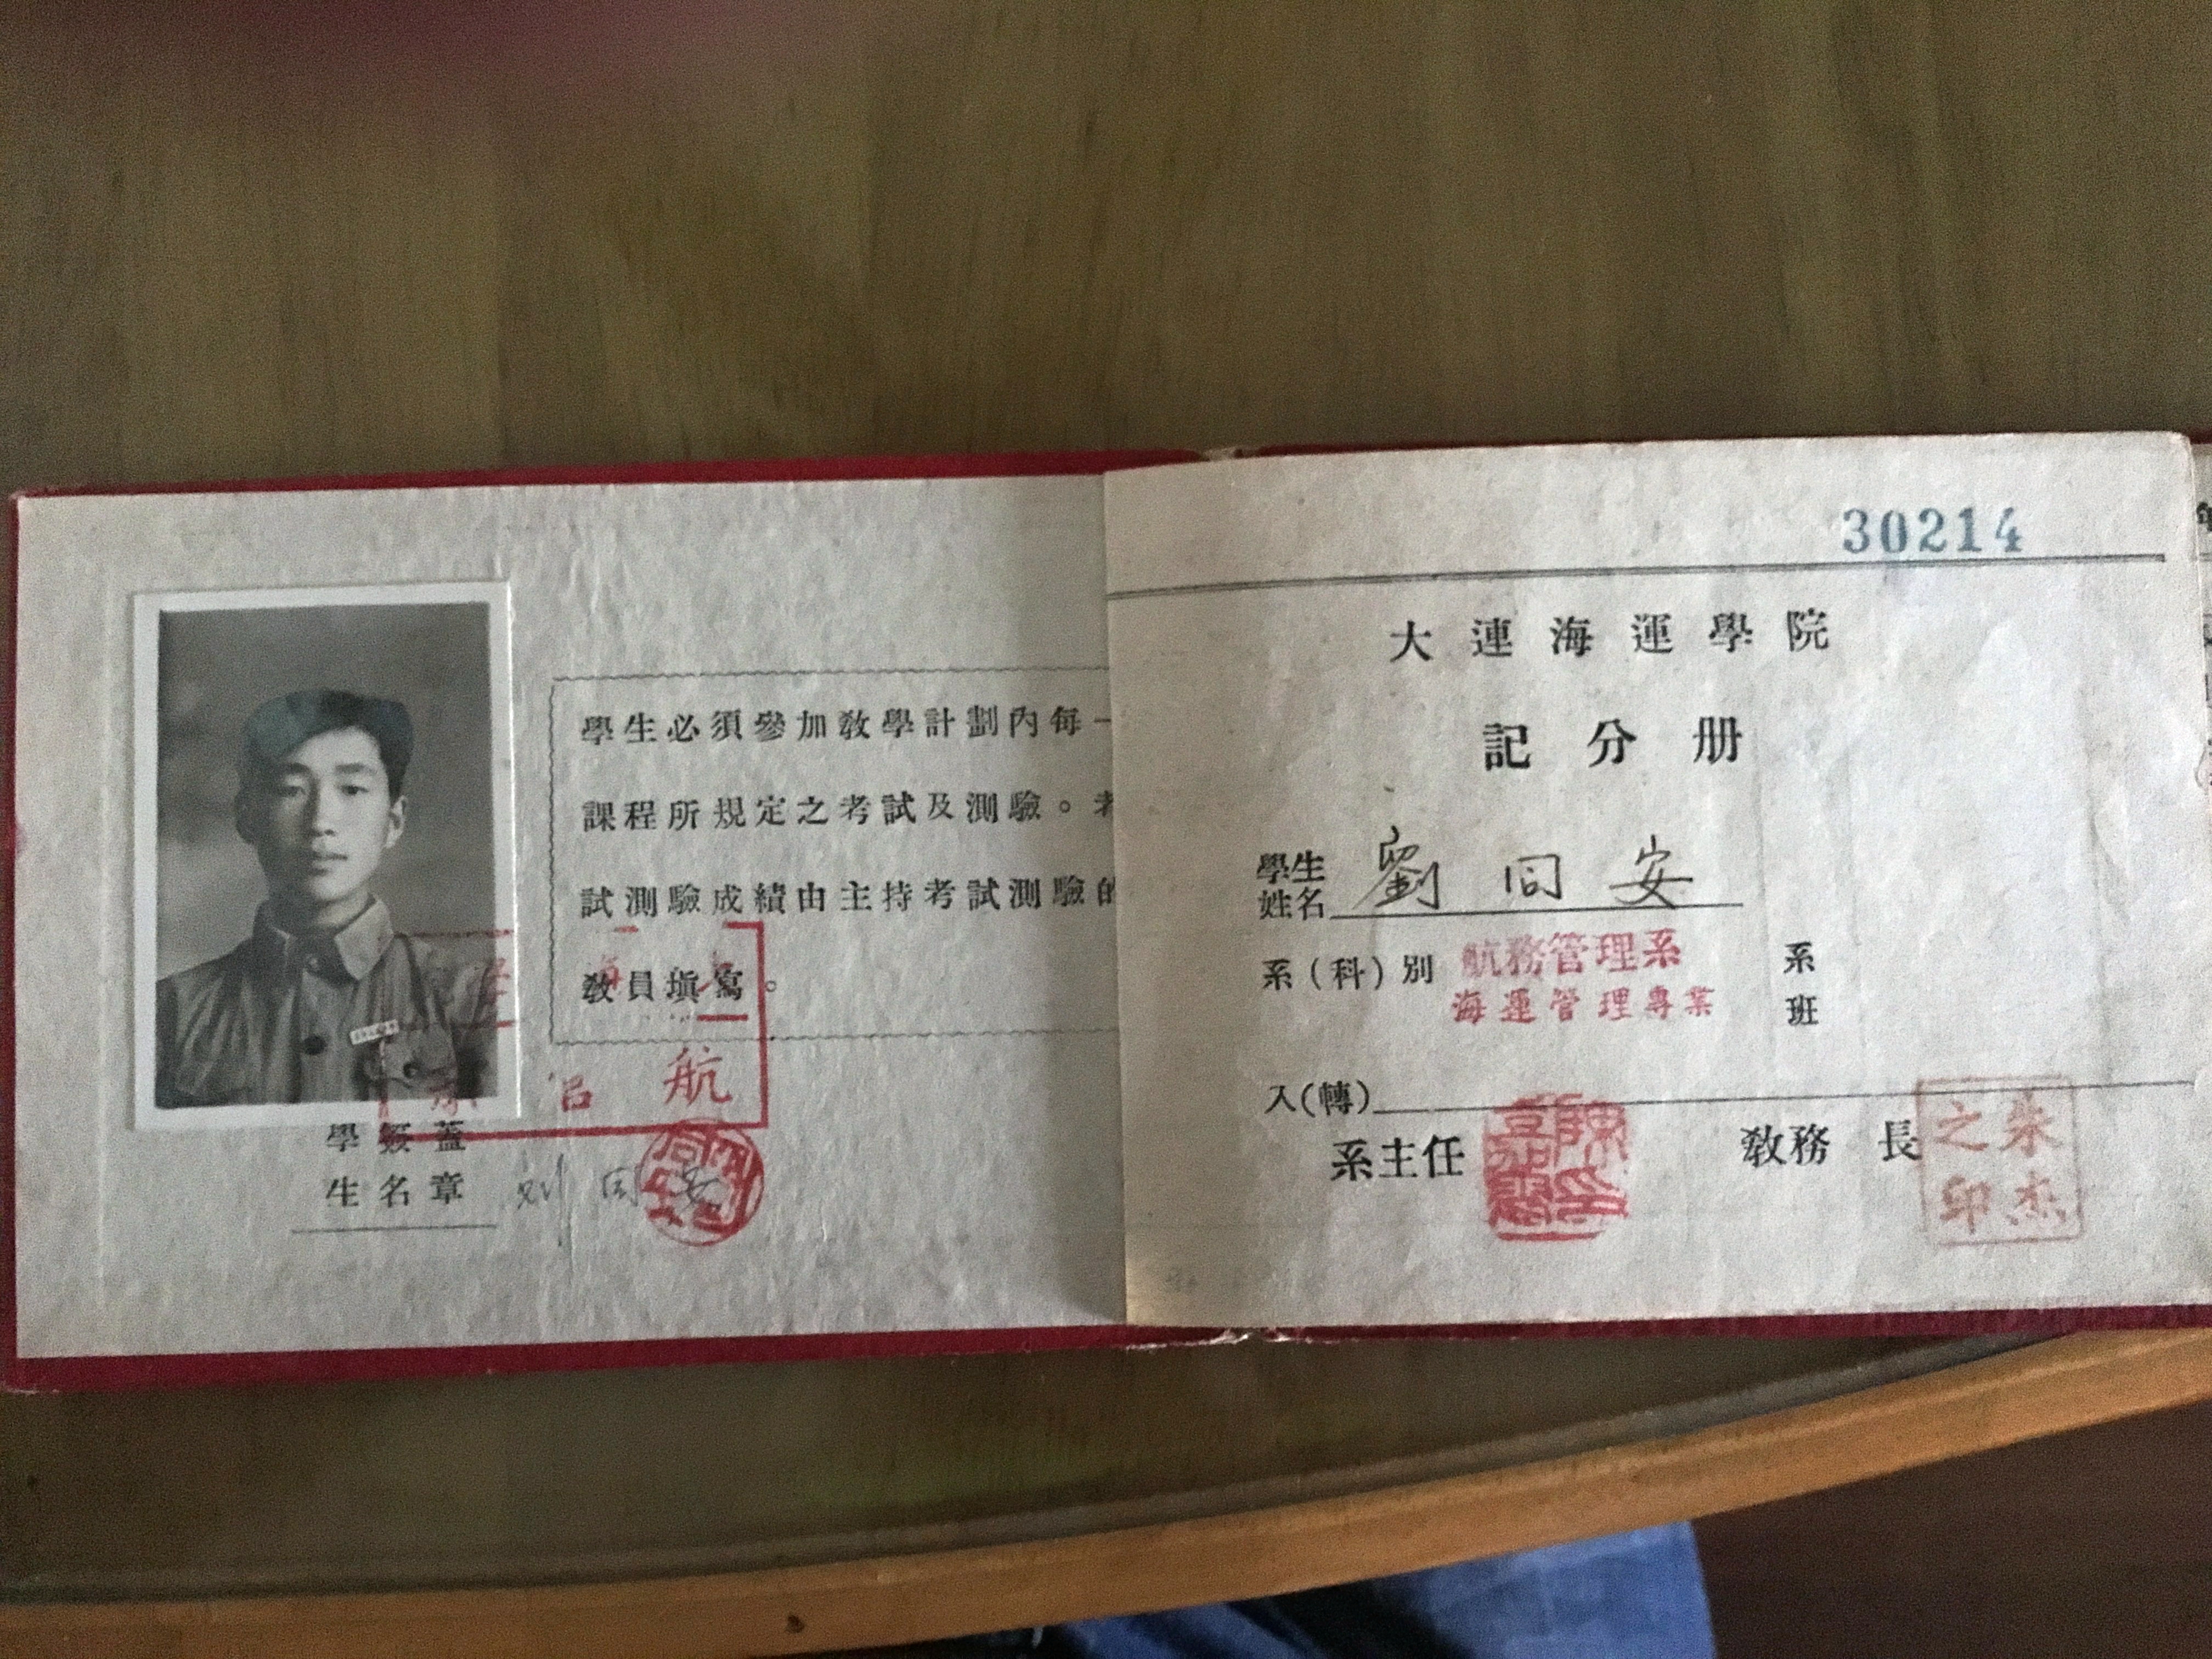 學生必須參加教學計劃內每一
課程所規定之考試及測驗。考
試測驗成績由主持考試測驗的
教員填寫。
航
學簽蓋
生名章
刘同安
30214
大連海運學院
記分册
學生
姓名
劉同安
系(科)別
航務管理系
系
海運管理專業
班
入(轉)
系主任
教務長
朱杰之印